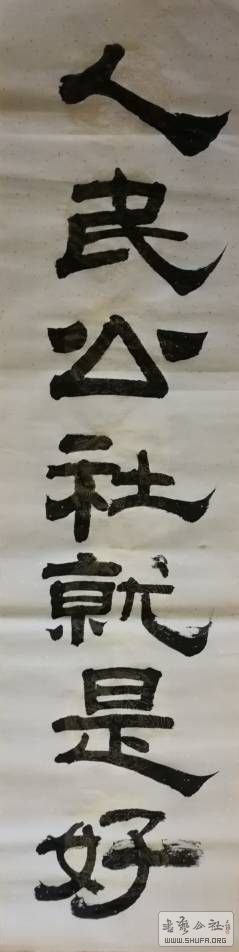 人民公社就是好
书艺公社
WWW.SHUFA.ORG